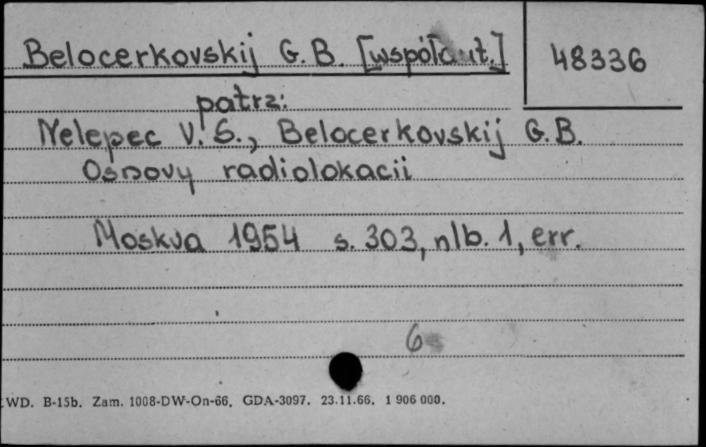 Belocerkovskij G. B. [współaut.]
48336
patrz:
Nelepec V. S., Belocerkovskij G. B.
Osnovy radiolokacii
Moskva 1954 s. 303, nlb. 1, err.
6
WD. B-15b. Zam. 1008-DW-On-66. GDA-3097. 23.11.66. 1 906 000.